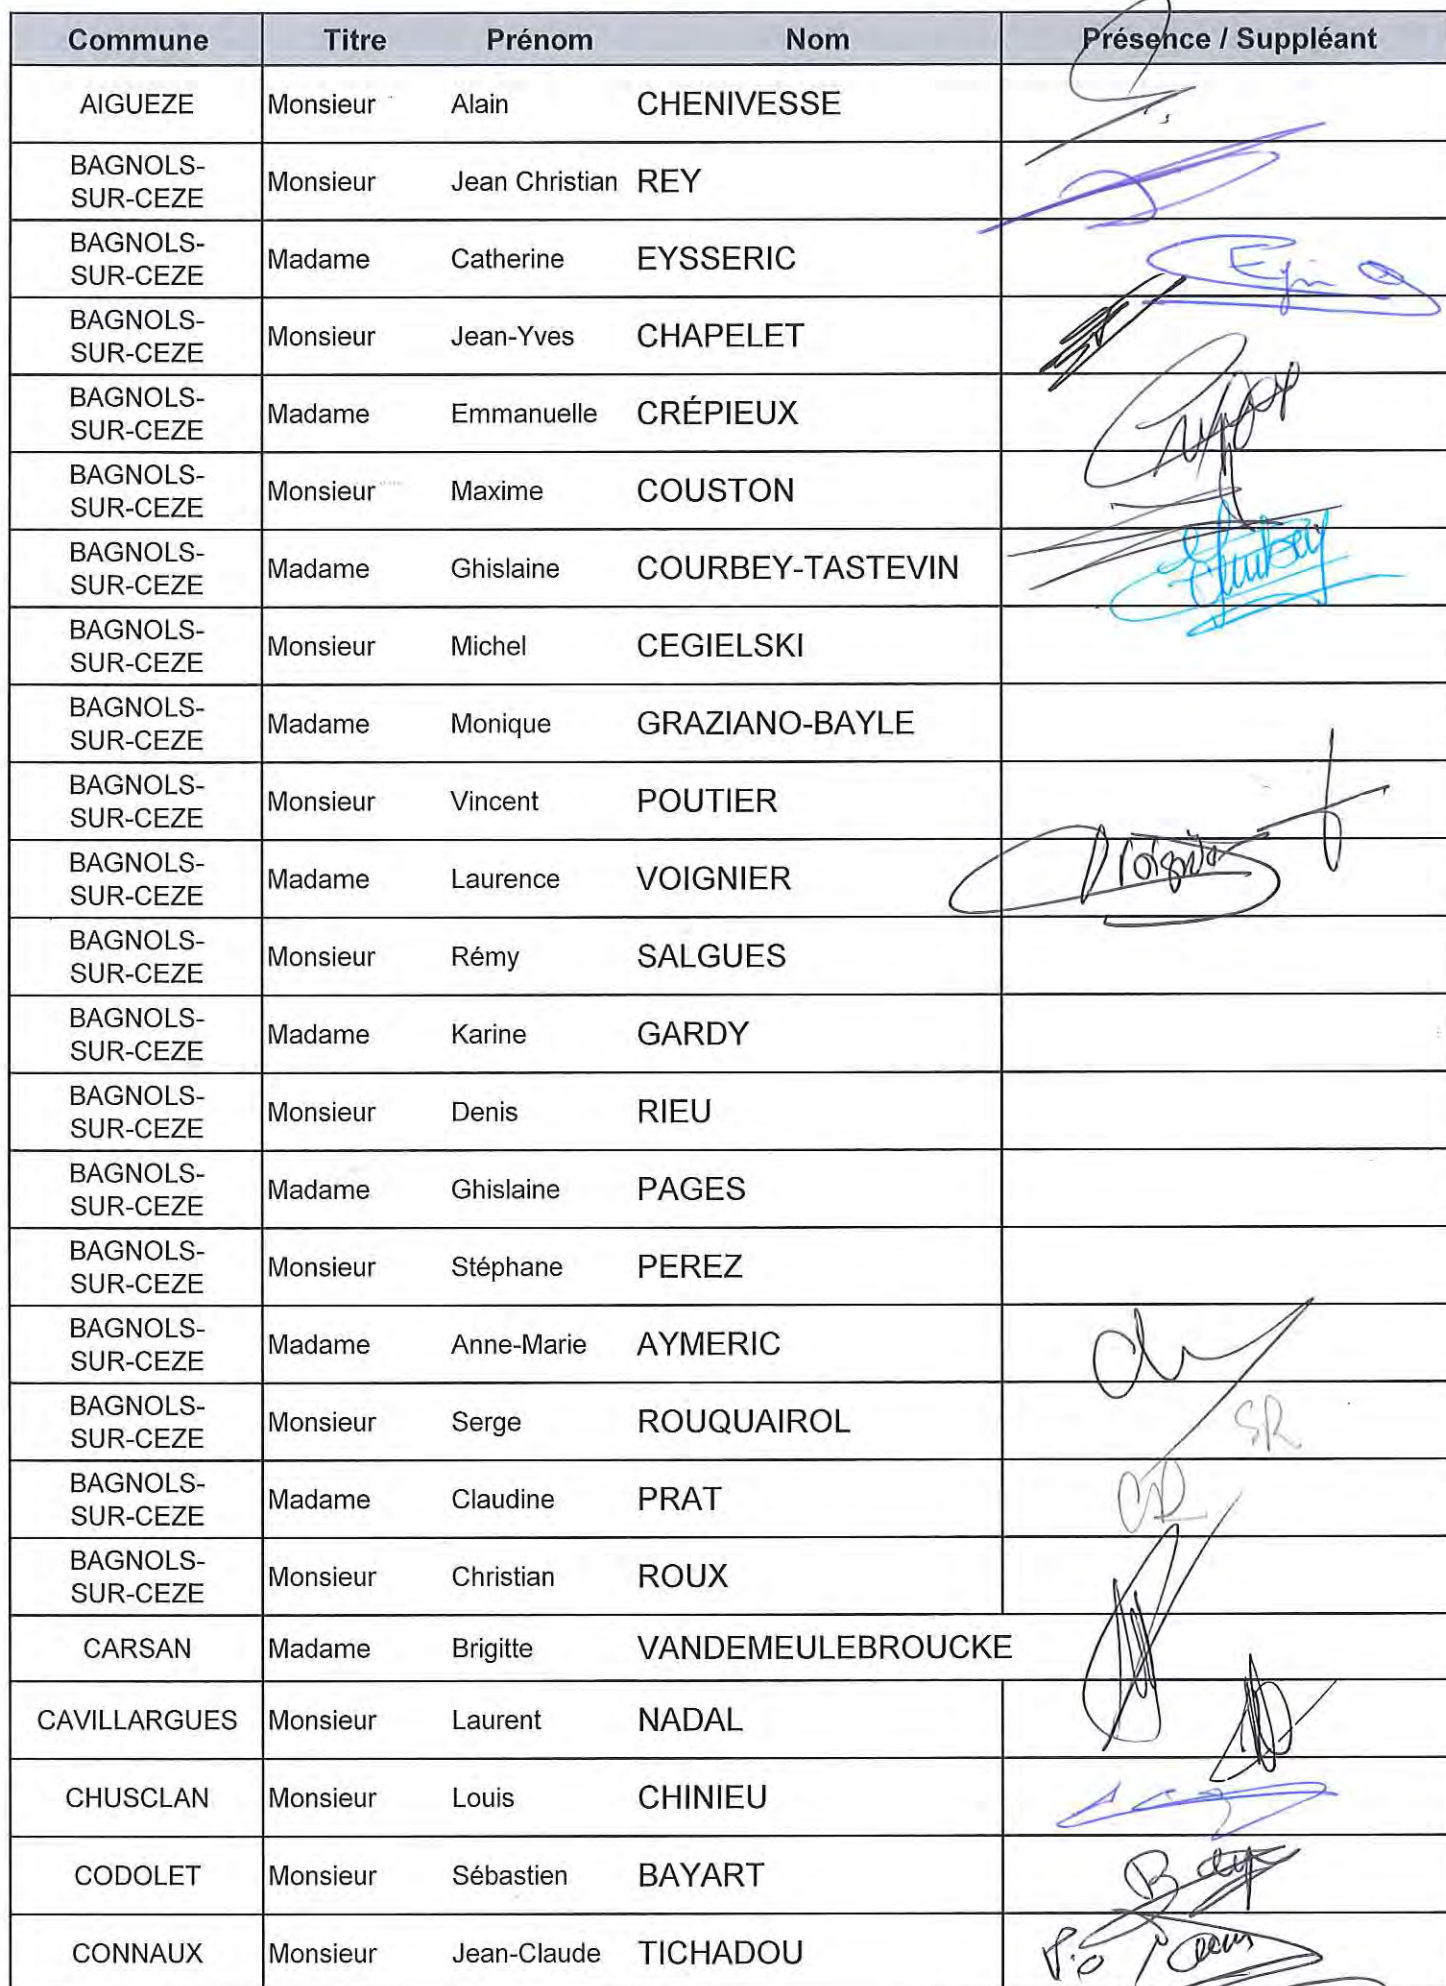 Commune Titre Prénom Nom Présence / Suppléant
AIGUEZE Monsieur Alain CHENIVESSE
BAGNOLS-
SUR-CEZE Monsieur Jean Christian REY
BAGNOLS-
SUR-CEZE Madame Catherine EYSSERIC
BAGNOLS-
SUR-CEZE Monsieur Jean-Yves CHAPELET
BAGNOLS-
SUR-CEZE Madame Emmanuelle CRÉPIEUX
BAGNOLS-
SUR-CEZE Monsieur Maxime COUSTON
BAGNOLS-
SUR-CEZE Madame Ghislaine COURBEY-TASTEVIN
BAGNOLS-
SUR-CEZE Monsieur Michel CEGIELSKI
BAGNOLS-
SUR-CEZE Madame Monique GRAZIANO-BAYLE
BAGNOLS-
SUR-CEZE Monsieur Vincent POUTIER
BAGNOLS-
SUR-CEZE Madame Laurence VOIGNIER
BAGNOLS-
SUR-CEZE Monsieur Rémy SALGUES
BAGNOLS-
SUR-CEZE Madame Karine GARDY
BAGNOLS-
SUR-CEZE Monsieur Denis RIEU
BAGNOLS-
SUR-CEZE Madame Ghislaine PAGES
BAGNOLS-
SUR-CEZE Monsieur Stéphane PEREZ
BAGNOLS-
SUR-CEZE Madame Anne-Marie AYMERIC
BAGNOLS-
SUR-CEZE Monsieur Serge ROUQUAIROL SR
BAGNOLS-
SUR-CEZE Madame Claudine PRAT
BAGNOLS-
SUR-CEZE Monsieur Christian ROUX
CARSAN Madame Brigitte VANDEMEULEBROUCKE
CAVILLARGUES Monsieur Laurent NADAL
CHUSCLAN Monsieur Louis CHINIEU
CODOLET Monsieur Sébastien BAYART
CONNAUX Monsieur Jean-Claude TICHADOU